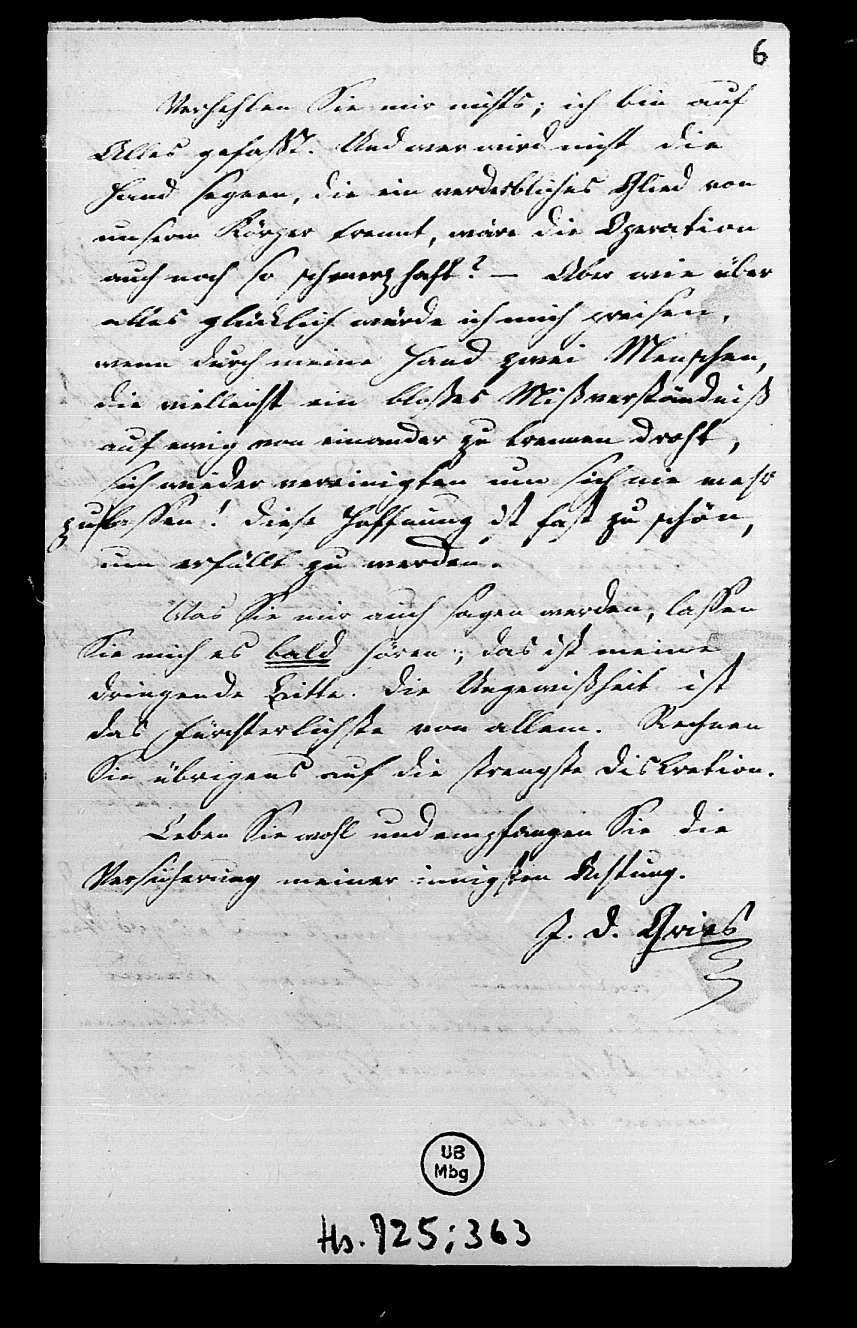 6
Verhehlen Sie mir nichts; ich bin auf
Alles gefaßt. Und wer wird nicht die
Hand segnen, die ein verderbliches Glied von
unserm Körper trennt, wäre die Operation
auch noch so schmerzhaft? — Aber wie über
alles glücklich würde ich mich preisen,
wenn durch meine Hand zwei Menschen,
die vielleicht ein bloßes Mißverständniß
auf ewig von einander zu trennen droht,
sich wieder vereinigten um sich nie mehr
zu lassen! Diese Hoffnung ist fast zu schön,
um erfüllt zu werden.
Was Sie mir auch sagen werden, lassen
Sie mich es bald hören; das ist meine
dringende Bitte. Die Ungewißheit ist
das fürchterlichste von allem. Rechnen
Sie übrigens auf die strengste Diskretion.
Leben Sie wohl und empfangen Sie die
Versicherung meiner innigsten Achtung.
J. D. Gries
UB
Mbg
Hs. 725:363